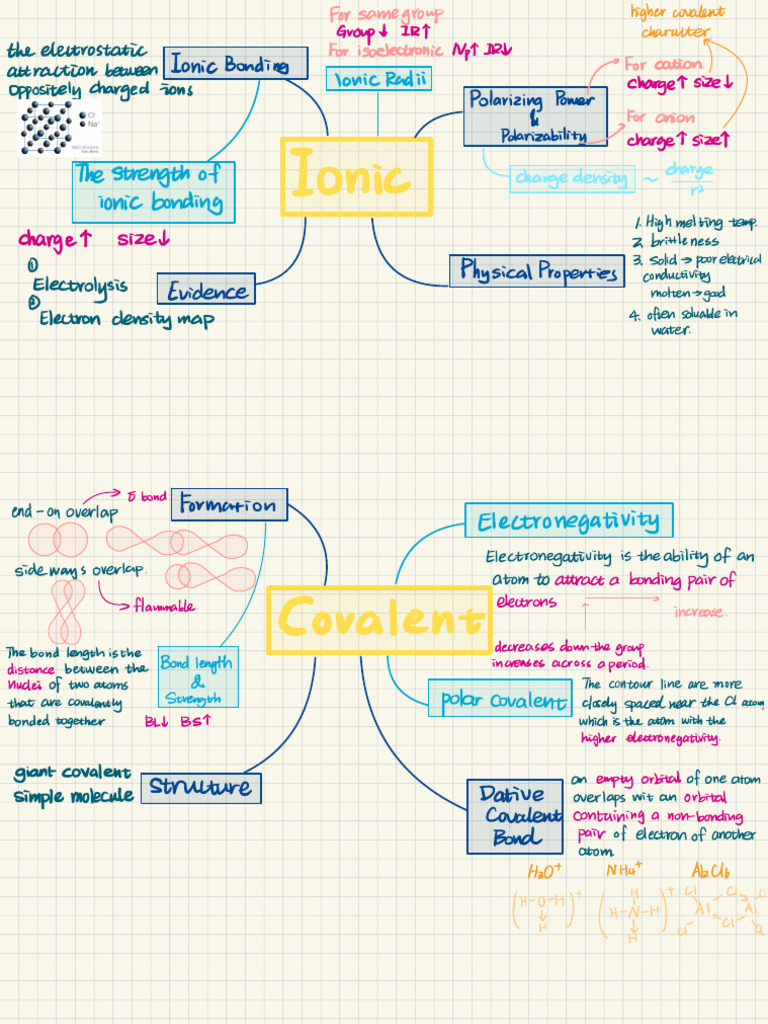 For same group
Group↓ IR↑
For isoelectronic Np↑ IR↓
Ionic Radii
higher covalent
character
the electrostatic
attraction between
oppositely charged ions
Ionic Bonding
Cl⁻
Na⁺
Polarizing Power
&
Polarizability
For cation
charge↑ size↓
For anion
charge↑ size↑
Ionic
The strength of
ionic bonding
charge density ~ charge
r²
charge↑ size↓
① Electrolysis
② Electron density map
Evidence
Physical Properties
1. High melting temp.
2. brittleness
3. solid → poor electrical
conductivity
molten → good
4. often soluable in
water.
end-on overlap
σ bond
Formation
sideways overlap.
flammable
Electronegativity
Electronegativity is the ability of an
atom to attract a bonding pair of
electrons
increase.
decreases down the group
increases across a period.
Covalent
The bond length is the
distance between the
nuclei of two atoms
that are covalently
bonded together
BL↓ BS↑
Bond length
&
Strength
polar covalent
The contour line are more
closely spaced near the Cl atom,
which is the atom with the
higher electronegativity.
giant covalent
simple molecule
Structure
Dative
Covalent
Bond
an empty orbital of one atom
overlaps wit an orbital
containing a non-bonding
pair of electron of another
atom
H₃O⁺ NH₄⁺ Al₂Cl₆
H-O-H +
H
H
H-N-H +
H
Cl Cl Cl
Al Al
Cl Cl Cl